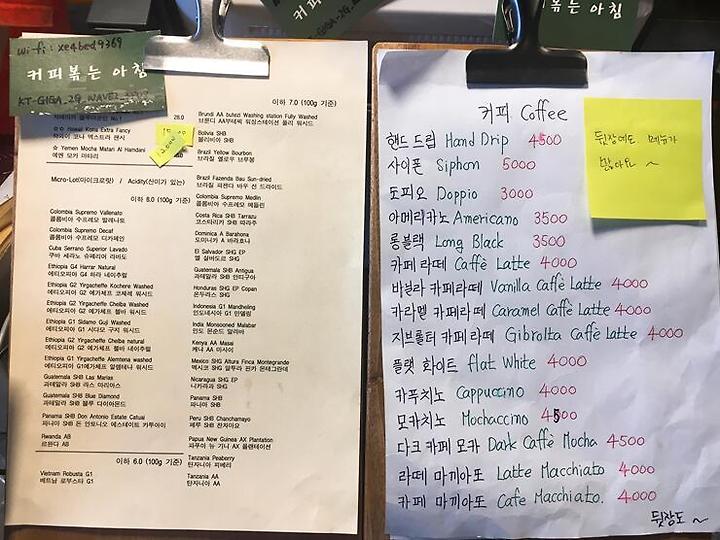 wi-fi: xe4bed9369
커피볶는 아침
KT-GIGA_2G_WAVE2
이하 7.0 (100g 기준)
28.0
☆☆ Hawaii Kona Extra Fancy
하와이 코나 엑스트라 팬시
☆ Yemen Mocha Matari Al Hamdani
예멘 모카 마타리
Micro-Lot(마이크로릿) / Acidity(산미가 있는)
이하 8.0 (100g 기준)
Colombia Supremo Vallenato
콜롬비아 수프레모 발레나토
Colombia Supremo Decaf
콜롬비아 수프레모 디카페인
Cuba Serrano Superior Lavado
쿠바 세라노 슈페리어 라바도
Ethiopia G4 Harrar Natural
에티오피아 G4 하라 내추럴
Ethiopia G2 Yirgacheffe Kochere Washed
에티오피아 G2 예가체프 코체레 워시드
Ethiopia G2 Yirgacheffe Chelba Washed
에티오피아 G2 예가체프 첼바 워시드
Ethiopia G1 Sidamo Guji Washed
에티오피아 G1 시다모 구지 워시드
Ethiopia G2 Yirgacheffe Chelba natural
에티오피아 G2 예가체프 첼바 네이추럴
Ethiopia G1 Yirgacheffe Alemtena washed
에티오피아 G1예가체프 알렘테나 워시드
Guatemala SHB Las Marias
과테말라 SHB 라스 마리아스
Guatemala SHB Blue Diamond
과테말라 SHB 블루 다이아몬드
Panama SHB Don Antonio Estate Catuai
파나마 SHB 돈 안토니오 에스테이트 카투아이
Rwanda AB
르완다 AB
이하 6.0 (100g 기준)
Vietnam Robusta G1
베트남 로부스타 G1
Brundi AA butezi Washing station Fully Washed
브룬디 AA부테찌 워싱스테이션 풀리 워시드
Bolivia SHB
볼리비아 SHB
Brazil Yellow Bourbon
브라질 옐로우 브루봉
Brazil Fazenda Bau Sun-dried
브라질 파젠다 바우 선 드라이드
Colombia Supremo Medlin
콜롬비아 수프레모 메들린
Costa Rica SHB Tarrazu
코스타리카 SHB 따라주
Dominica A Barahona
도미니카 A 바라호나
El Salvador SHG EP
엘 살바도르 SHG
Guatemala SHB Antigua
과테말라 SHB 안티구아
Honduras SHG EP Copan
온두라스 SHG
Indonesia G1 Mandheling
인도네시아 G1 만델링
India Monsooned Malabar
인도 몬순드 말라바
Kenya AA Masai
케냐 AA 마사이
Mexico SHG Altura Finca Montegrande
멕시코 SHG 알투라 핀카 몬테그란데
Nicaragua SHG EP
니카라과 SHG
Panama SHB
파나마 SHB
Peru SHB Chanchamayo
페루 SHB 찬차마요
Papua New Guinea AX Plantation
파푸아 뉴 기니 AX 플랜테이션
Tanzania Peaberry
탄자니아 피베리
Tanzania AA
탄자니아 AA
커피 Coffee
핸드 드립 Hand Drip 4500
사이폰 Siphon 5000
도피오 Doppio 3000
아메리카노 Americano 3500
롱블랙 Long Black 3500
카페라떼 Caffè Latte 4000
바닐라 카페라떼 Vanilla Caffè Latte 4000
카라멜 카페라떼 Caramel Caffè Latte 4000
지브롤터 카페라떼 Gibrolta Caffè Latte 4000
플랫 화이트 flat White 4000
카푸치노 Cappuccino 4000
모카치노 Mochaccino 4500
다크 카페 모카 Dark Caffè Mocha 4500
라떼 마끼아또 Latte Macchiato 4000
카페 마끼아또 Cafe Macchiato. 4000
뒷장도 ~
뒷장에도 메뉴가
많아요 ~